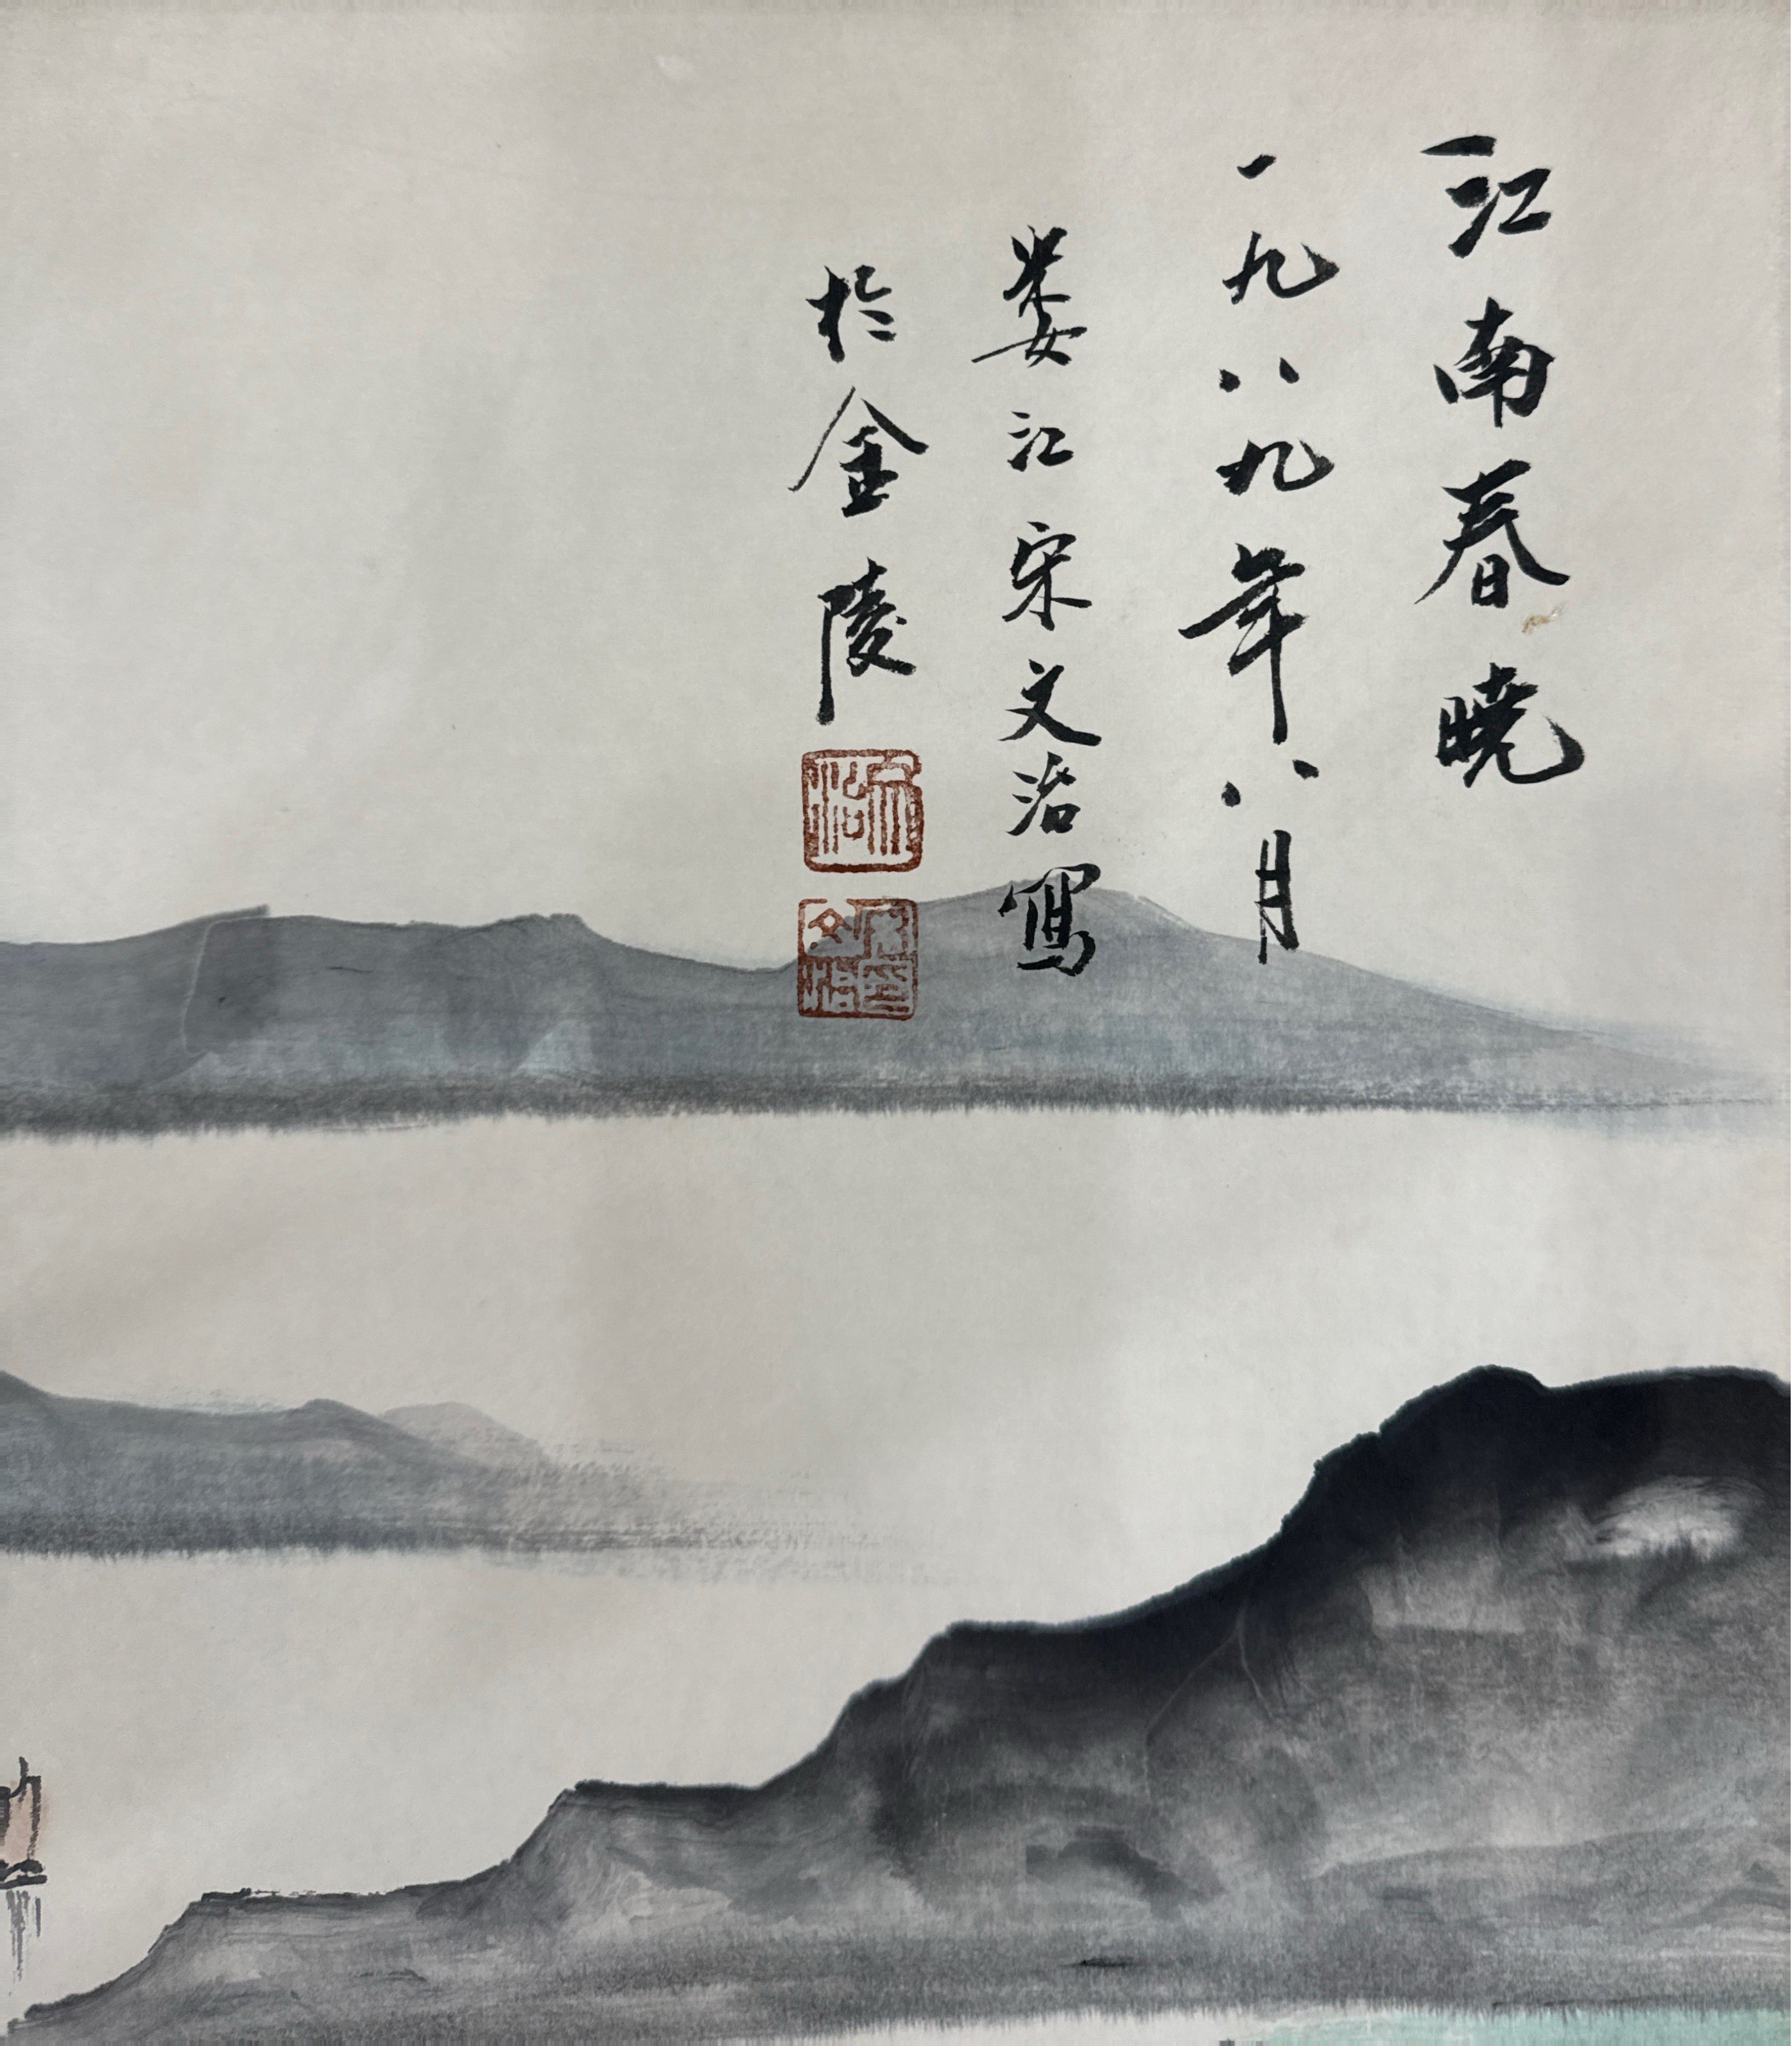 江南春曉
一九八九年八月
婁江宋文治寫
於金陵
宋文治印